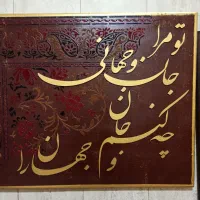 تو مرا
جان و جهانی
چه کنم جان
و جهان را